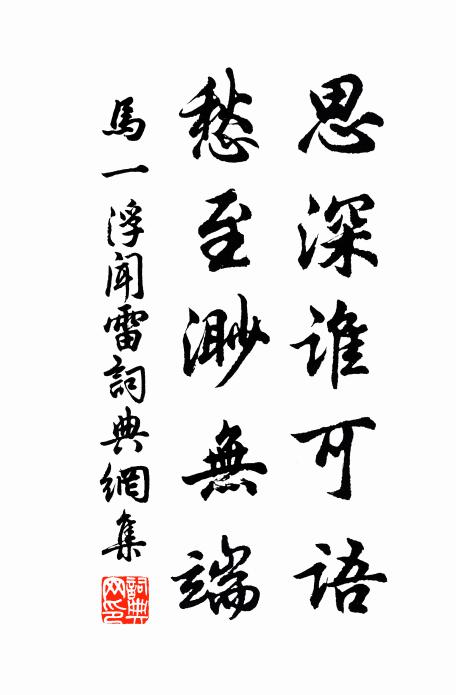 思深谁可語
愁至渺無端
馬一浮聞雷詞典網集
詞典網印